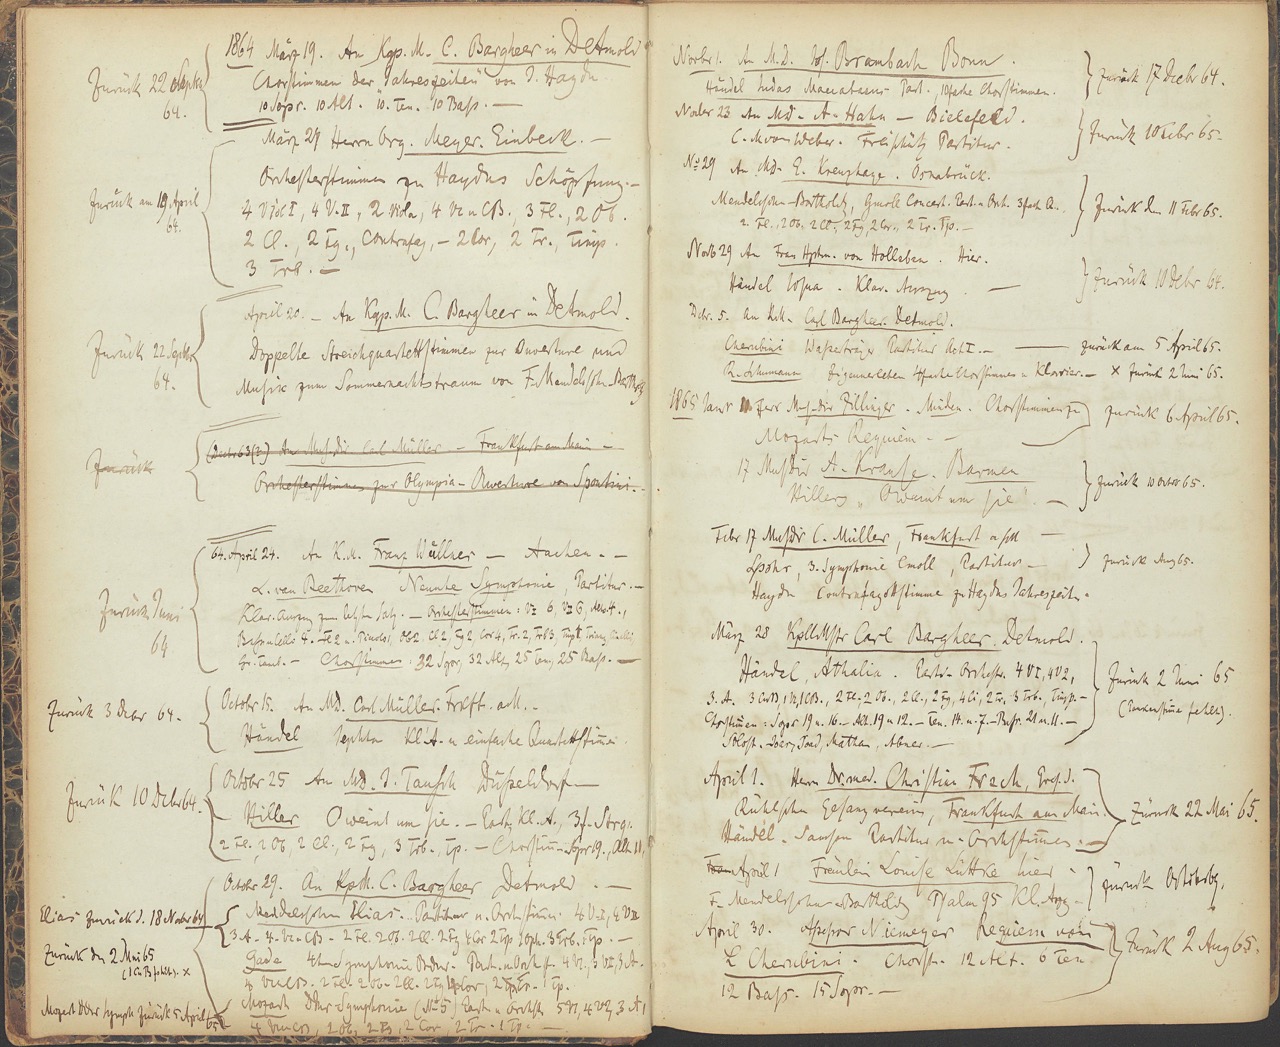 1864 März 19. An Kap. M. C. Bargheer in Detmold
Zurück 22 Septbr 64.
Chorstimmen der "Jahreszeiten" von J. Haydn
10 Sopr. 10 Alt. 10. Ten. 10 Bass. —
März 29 Herrn Org. Meyer. Einbeck. —
Zurück am 19 April 64.
Orchesterstimmen zu Haydns Schöpfung. —
4 Viol I, 4 V. II, 2 Viola, 4 Vc u CB., 3 Fl., 2 Ob.
2 Cl., 2 Fg., Contrafag, — 2 Cor, 2 Tr., Timp.
3 Trb. —
April 20. — An Kap. M. C. Bargheer in Detmold.
Zurück 22 Septbr 64.
Doppelte Streichquartettstimmen zur Ouverture und
Musik zum Sommernachtstraum von F. Mendelssohn-Barthold
Zurück
(Decbr 63(?) An Mus. Dir Carl Müller — Frankfurt am Main —
Orchesterstimmen zur Olympia-Ouverture von Spontini. —
64. April 24. An K. M. Franz Wüllner — Aachen. —
Zurück Juni 64
L. van Beethoven Neunte Symphonie, Partitur. —
Klav. Auszug zum letzten Satz. — Orchesterstimmen: V I 6, V II 6, Alt 4.,
4. Fl 2 u. Piccolo 1, Ob 2. Cl 2, Fg 2 Cor 4, Tr. 2, Trb 3,
— Chorstimmen 32 Sopr, 32 Alt, 25 Ten, 25 Bass. —
Zurück 3 Decbr 64. -
October 15. An MD. Carl Müller. Frkft. a M. -
Händel Jephta Kl. A. u einfache Quartettstimen.
October 25 An MD. J. Tausch Düsseldorf —
Zurück 10 Decbr 64.
Hiller O weint um sie. — Part, Kl. A.,
2 Fl., 2 Ob, 2 Cl., 2 Fg, 3 Trb., Tp. — Chorstim. Sopr 19., Alt. 11,
October 29. An Kplm. C. Bargheer Detmold. —
Elias zurück d. 18 Novbr 64
Mendelssohn Elias. Partitur u. Orchstim. 4 V I, 4 V II
3 A. 4. Vc u CB — 2 Fl. 2 Ob. 2 Cl. 2 Fg 4 Cor 2 Trp 1 Oph. 3 Trb. 1 Tp. —
Zurück den 2 Mai 65
(1 CB fehlt). x
Gade 4te Symphonie Bdur. Part. u Orch st. 4 V I, 3 V II, 3 A.
4 Vc u CB. 2 Fl. 2 Ob. 2 Cl. 2 Fg 4 Cor, 2 Tr. 1 Tp.
Mozart Ddur Symph zurück 5 April 65
Mozart Ddur Symphonie (No 5) Part u Orchstr 5 V I, 4 V 2, 3 A,
4 Vc u CB, 2 Ob, 2 Fg, 2 Cor, 2 Tr. 1 Tp. —
Novbr 1. An M.D. Jos. Brambach Bonn.
Händel Judas Maccabaeus Part. 10fache Chorstimmen.
zurück 17 Decbr 64.
Novbr 23 An Md. A. Hahn — Bielefeld.
C. M. von Weber. Freischütz Partitur.
Zurück 10 Febr 65.
No 29 An Md. E. Kreuzhage. Osnabrück.
Mendelssohn-Bartholdy, Gmoll Concert. Part. u Orch. 3fach Q.
2. Fl., 2 Ob, 2 Cl., 2 Fg, 2 Cor., 2 Tr. Tp. —
Zurück den 11 Febr 65.
Novb 29 An Frau Hptm. von Holleben. Hier.
Händel Josua. Klav. Auszug. —
Zurück 10 Debr 64.
Decbr. 5. An Kplm. Carl Bargheer. Detmold.
Cherubini Wasserträger Partitur Act I. — zurück am 5 April 65.
R. Schumann Zigeunerleben 4fache Chorstimmen u Klavier. — x Zurück 2 Juni 65.
1865 Janr 11 Herr Mus. Dir Pillinger. Minden. Chorstimmen zu
Mozarts Requiem. —
zurück 6 April 65.
17 MusDir A. Krause. Barmen
Hillers "O weint um sie". —
zurück 10 Octbr 65.
Febr 17 MusDir C. Müller, Frankfurt a/M —
Spohr, 3. Symphonie Cmoll, Partitur —
Haydn Contrafagottstimme zu Haydns Jahreszeiten.
zurück Aug 65.
März 28 Kpllmstr Carl Bargheer. Detmold.
Händel, Athalia. Partr. Orchestr. 4 V I, 4 V 2,
3. A. 2 Fl. 2 Ob., 2 Cl., 2 Fg, 4 Cr, 2 Tr. 3 Trb., Timp. —
Chorstimen: Sopr 19 u. 16. — Alt. 19 u 12. — Ten. 14. u. 7. — Bass. 21 u. 11. —
Solost. Joad, Mathan, Abner. —
Zurück 2 Juni 65
April 1. Herrn Dr. med. Christian Fresh,
Rühlschen Gesangverein, Frankfurt am Main.
Händel. Samson Partitur u. Orchstimmen. —
Zurück 22 Mai 65.
April 1 Fräulein Louise Lüttke hier.
F. Mendelssohn-Bartholdy Psalm 95 Kl. Ausz —
zurück October 65,
April 30. Assessor Niemeyer Requiem von
L. Cherubini. Chorst. 12 Alt. 6 Ten
12 Bass. 15 Sopr. —
Zurück 2 Aug 65.